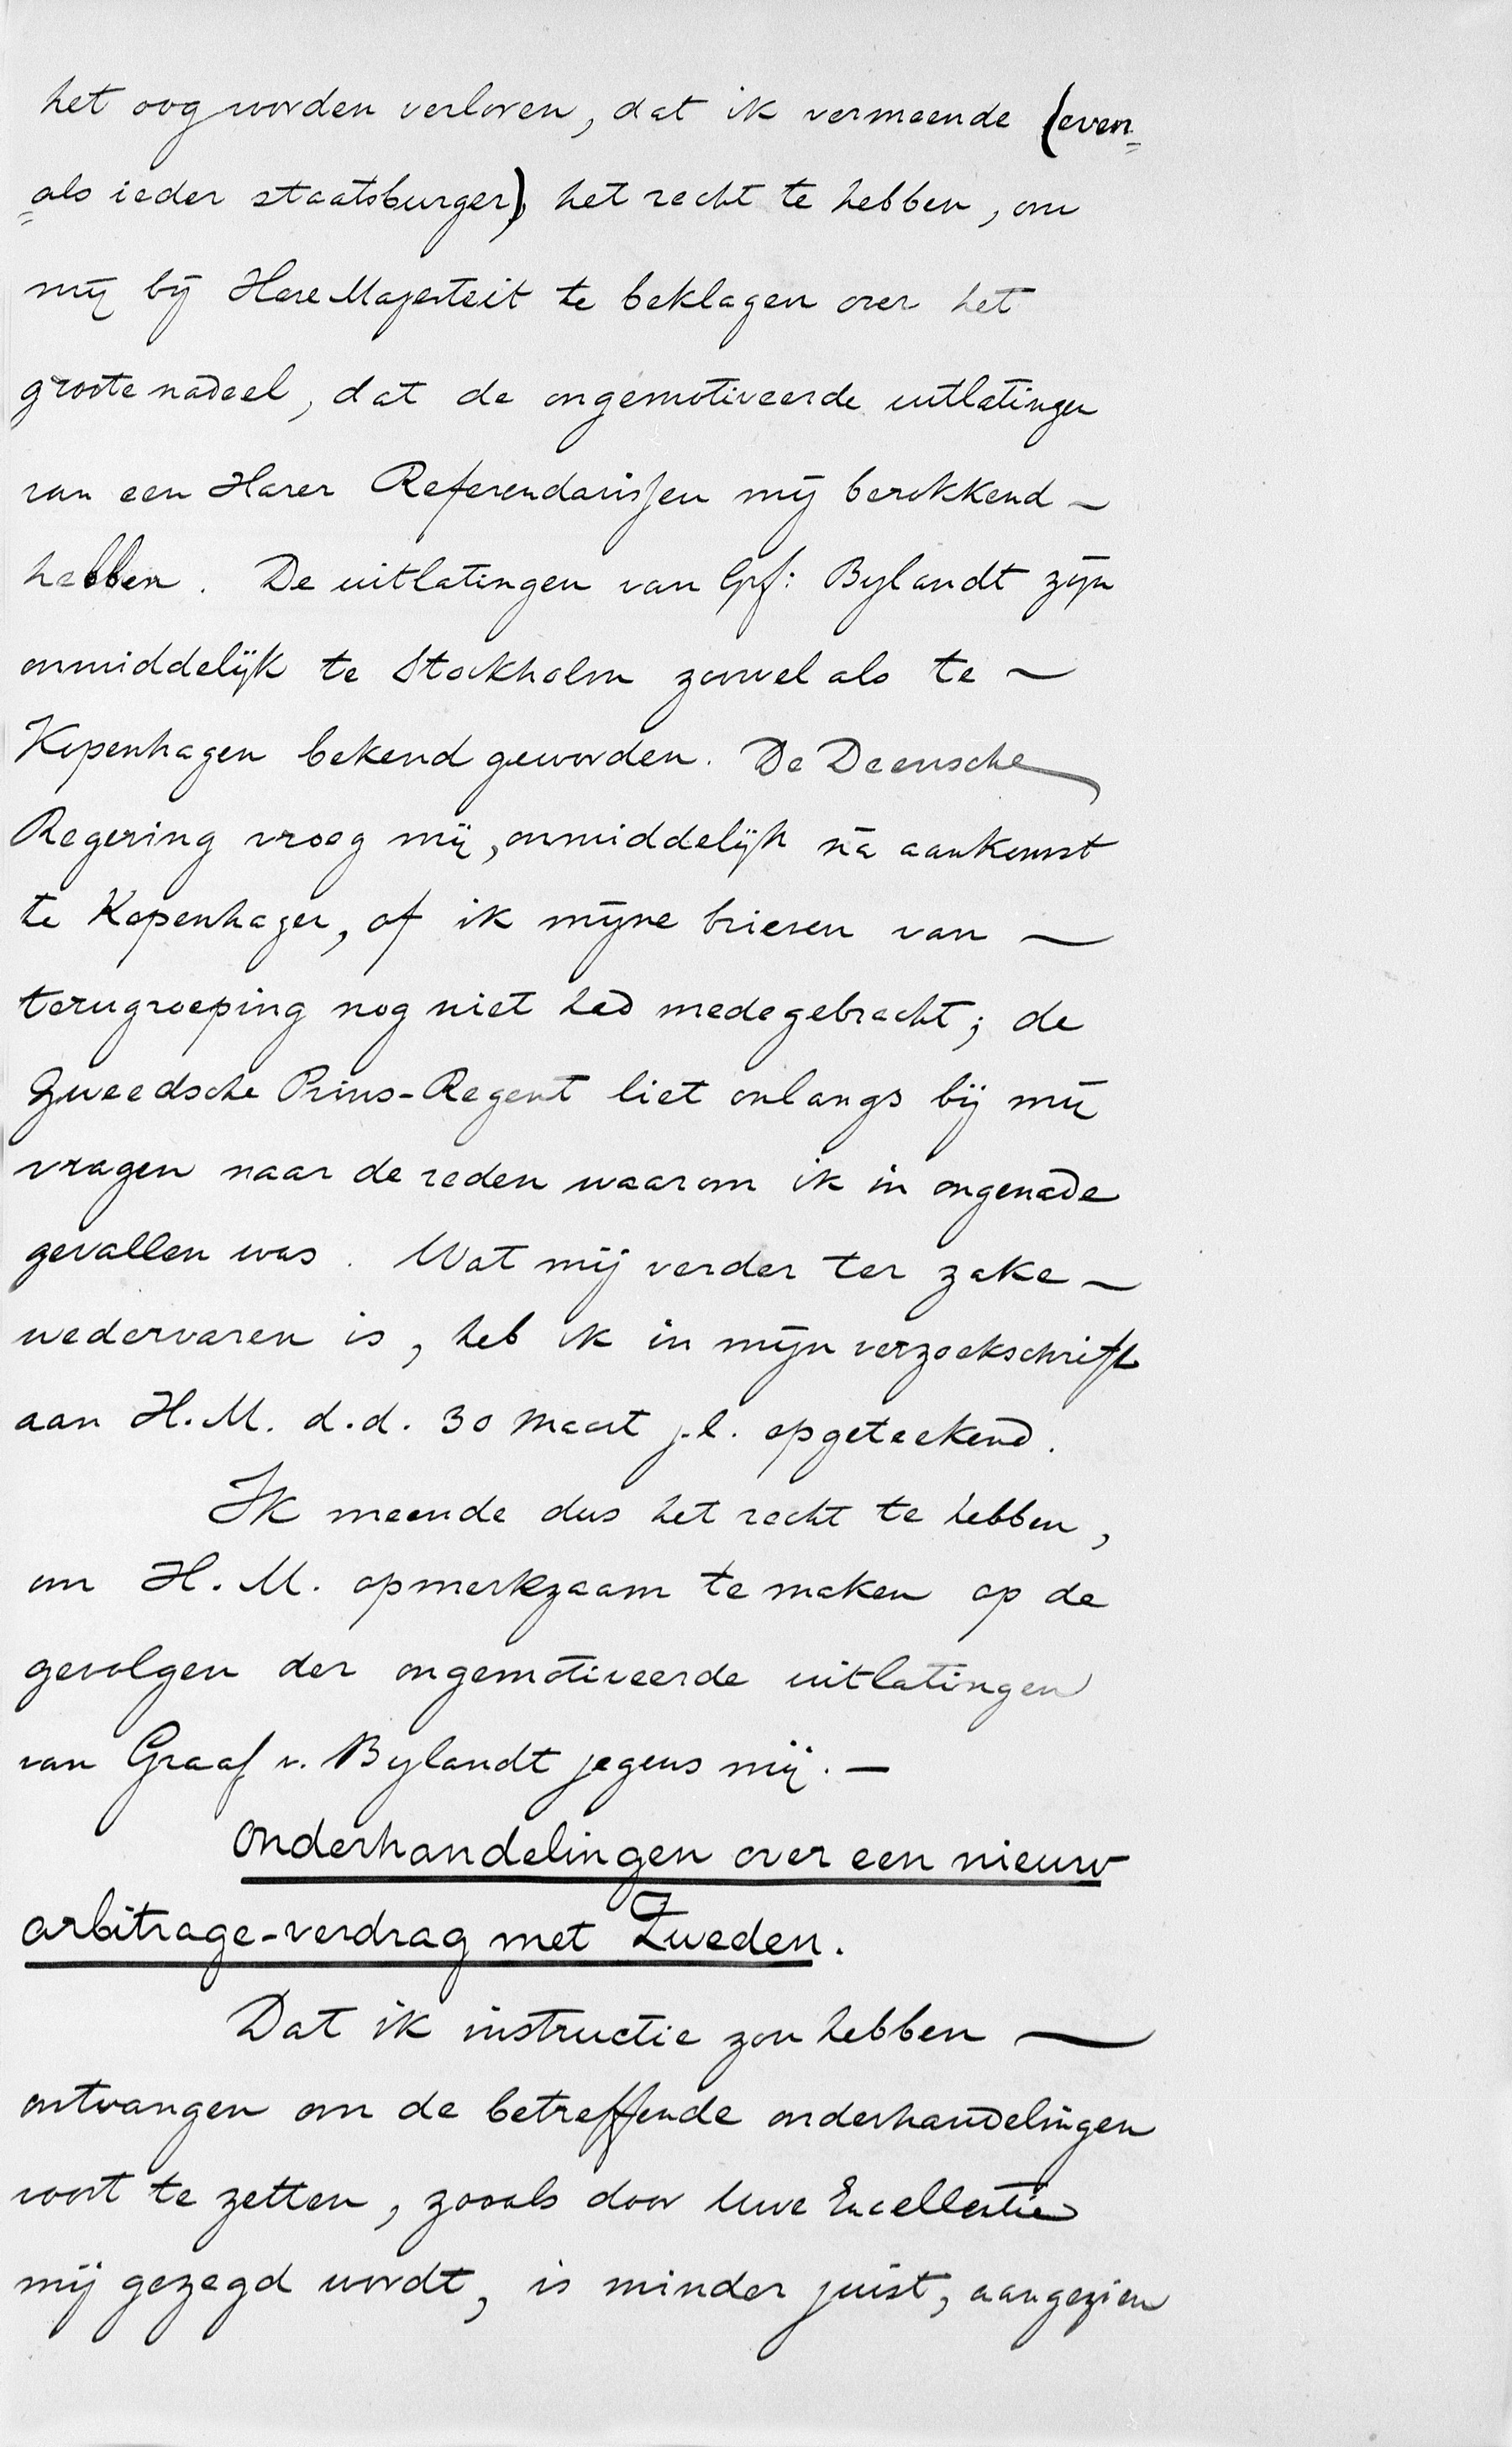 het oog worden verloren, dat ik vermeende (even=
=als ieder staatsburger), het recht te hebben, om
mij bij Hare Majesteit te beklagen over het
groote nadeel, dat de ongemotiveerde uitlatingen
van een Harer Referendarissen mij berokkend —
hebben. De uitlatingen van Grf: Bylandt zijn
onmiddelijk te Stockholm zoowel als te —
Kopenhagen bekend geworden. De Deensche
Regering vroeg mij, onmiddelijk na aankomst
te Kopenhagen, of ik mijne brieven van —
terugroeping nog niet had medegebracht; de
Zweedsche Prins-Regent liet onlangs bij mij
vragen naar de reden waarom ik in ongenade
gevallen was. Wat mij verder ter zake —
wedervaren is, heb ik in mijn verzoekschrift
aan H.M. d.d. 30 Maart j.l. opgeteekend.
Ik meende dus het recht te hebben,
om H.M. opmerkzaam te maken op de
gevolgen der ongemotiveerde uitlatingen
van Graaf v. Bylandt jegens mij. —
Onderhandelingen over een nieuw
arbitrage-verdrag met Zweden.
Dat ik instructie zou hebben —
ontvangen om de betreffende onderhandelingen
voort te zetten, zooals door Uwe Excellentie
mij gezegd wordt, is minder juist, aangezien